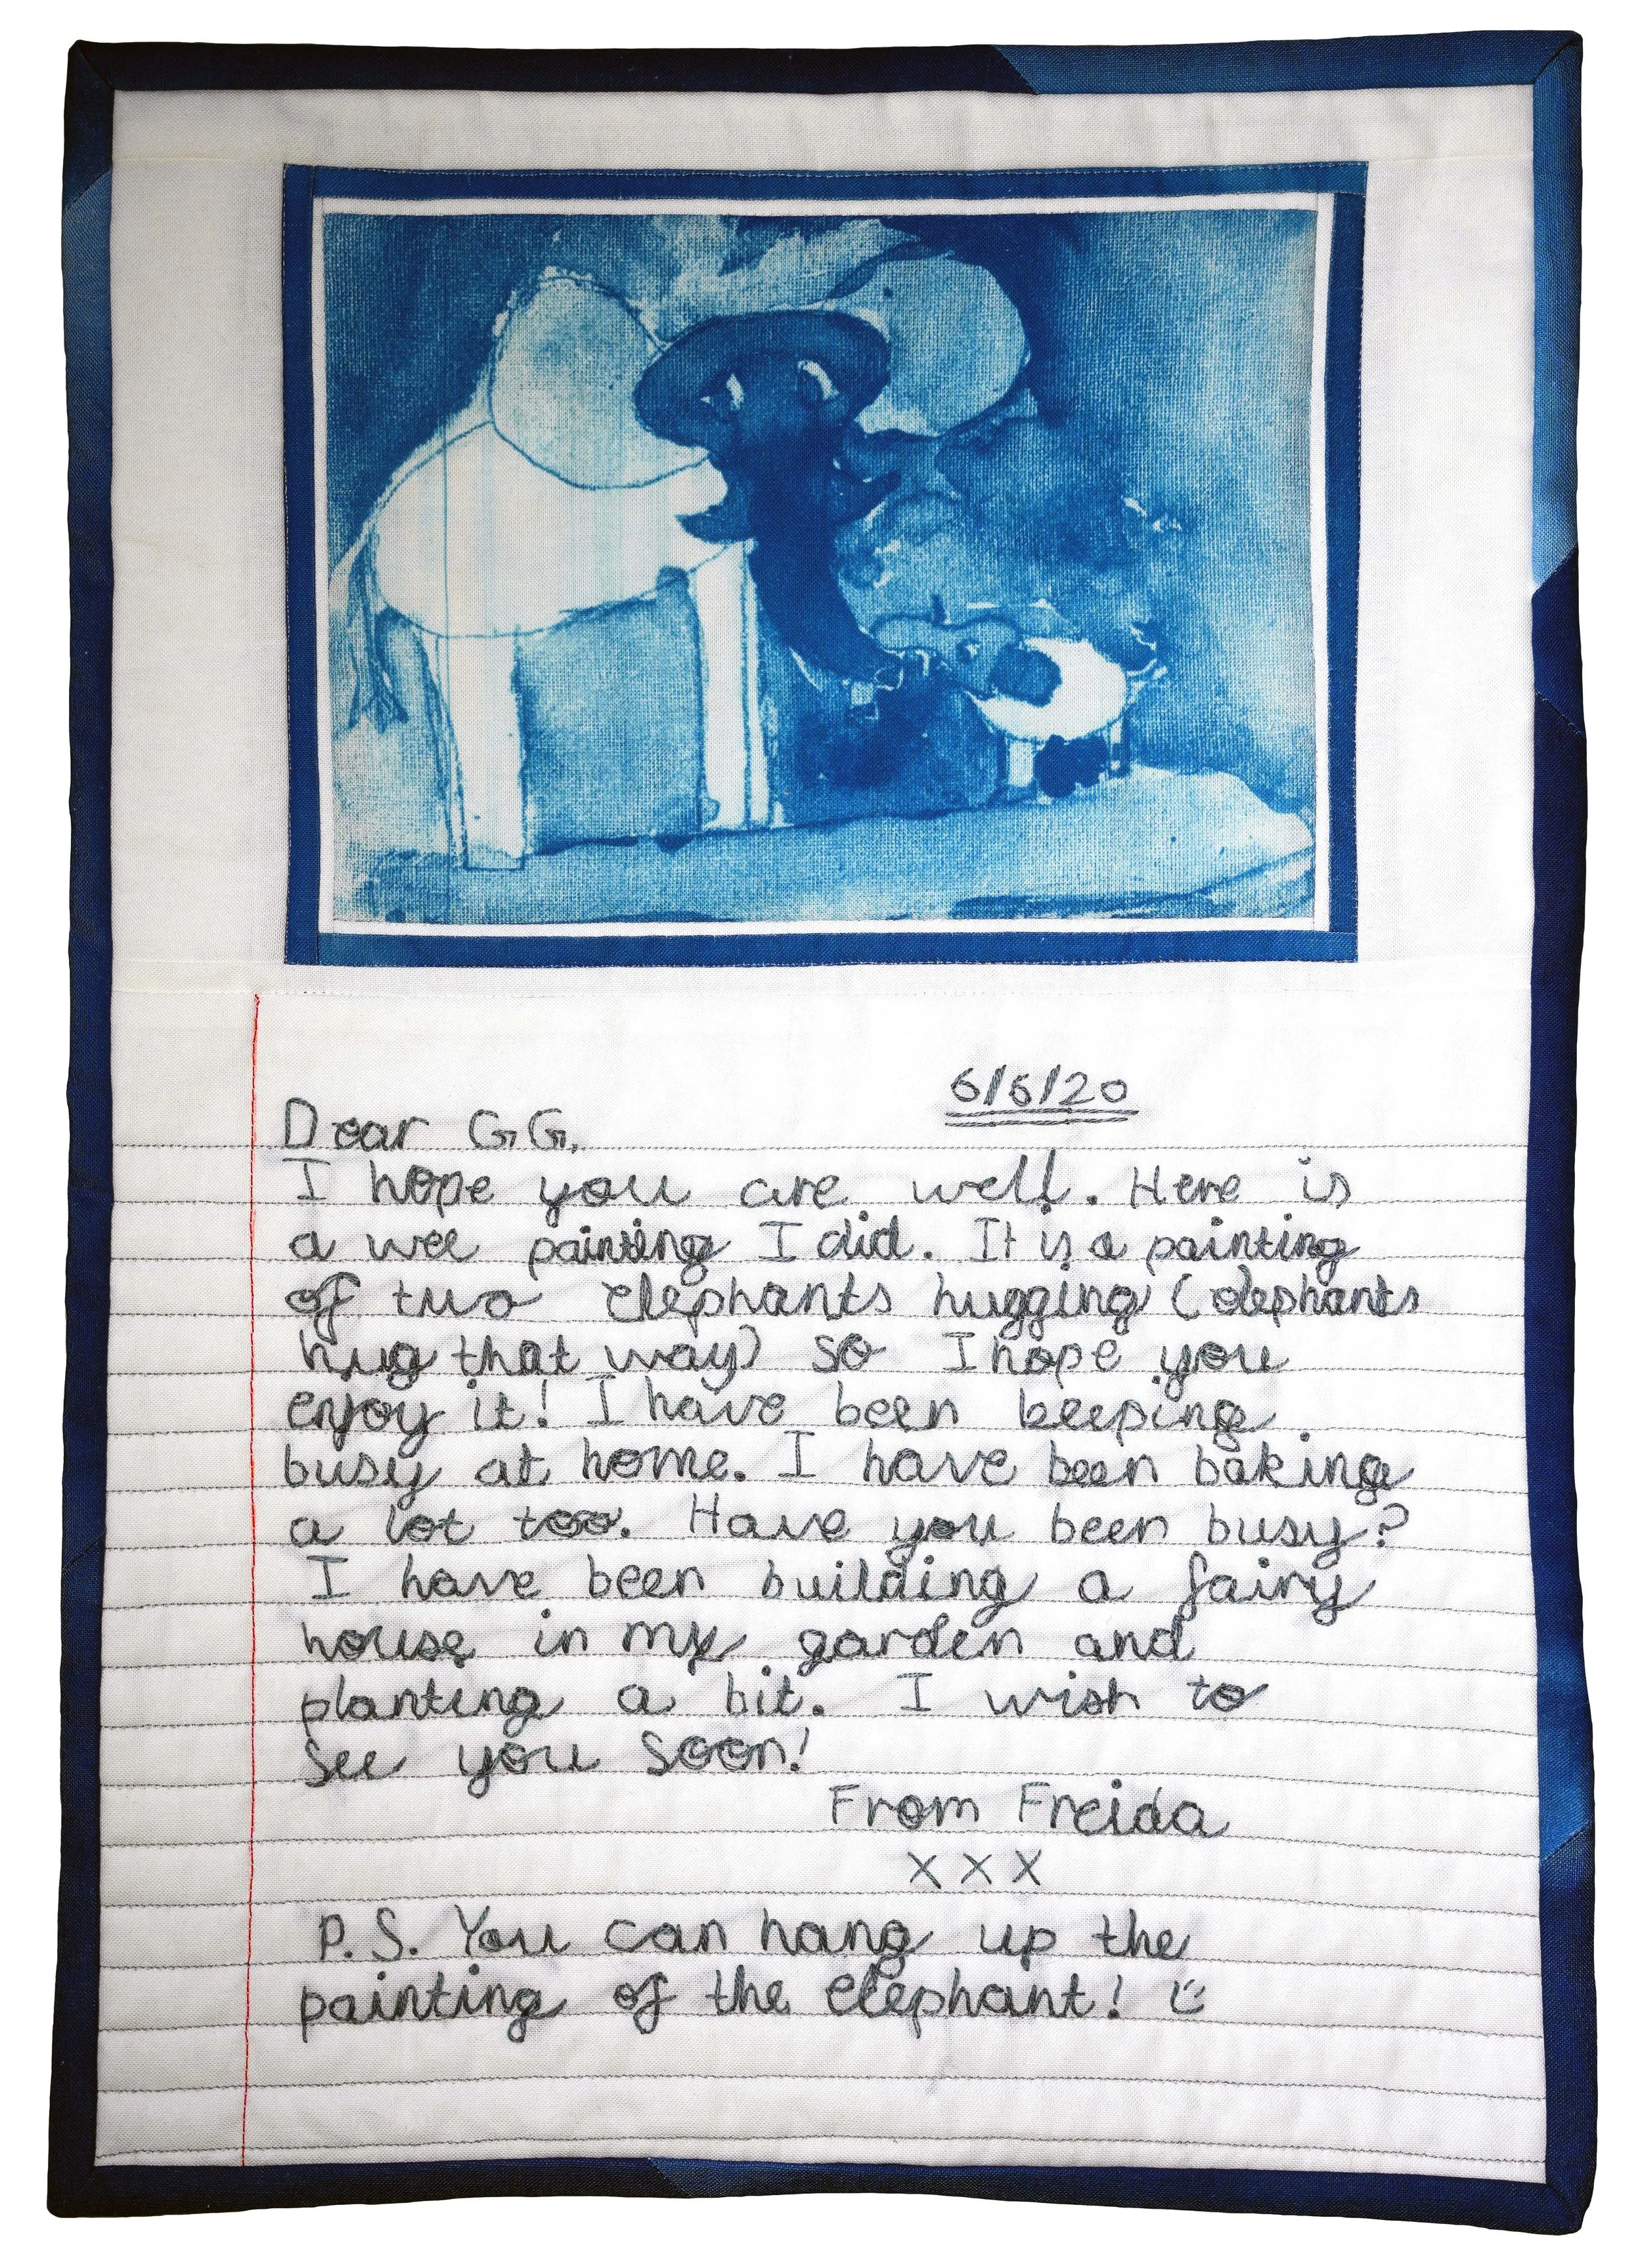 6/6/20
Dear GG,
I hope you are well. Here is
a wee painting I did. It is a painting
of two elephants hugging (elephants
hug that way) so I hope you
enjoy it! I have been keeping
busy at home. I have been baking
a lot too. Have you been busy?
I have been building a fairy
house in my garden and
planting a bit. I wish to
see you soon!
From Freida
X X X
P.S. You can hang up the
painting of the elephant!